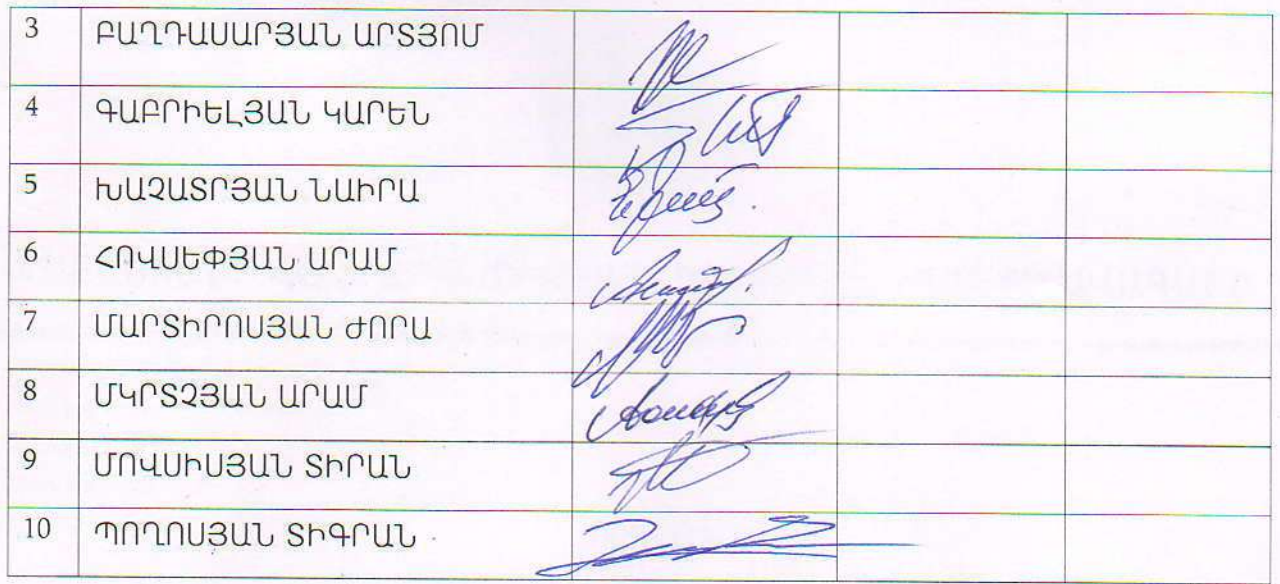 3 ԲԱՂԴԱՍԱՐՅԱՆ ԱՐՏՅՈՄ
4 ԳԱԲՐԻԵԼՅԱՆ ԿԱՐԵՆ
5 ԽԱՉԱՏՐՅԱՆ ՆԱԻՐԱ
6 ՀՈՎՍԵՓՅԱՆ ԱՐԱՄ
7 ՄԱՐՏԻՐՈՍՅԱՆ ԺՈՐԱ
8 ՄԿՐՏՉՅԱՆ ԱՐԱՄ
9 ՄՈՎՍԻՍՅԱՆ ՏԻՐԱՆ
10 ՊՈՂՈՍՅԱՆ ՏԻԳՐԱՆ